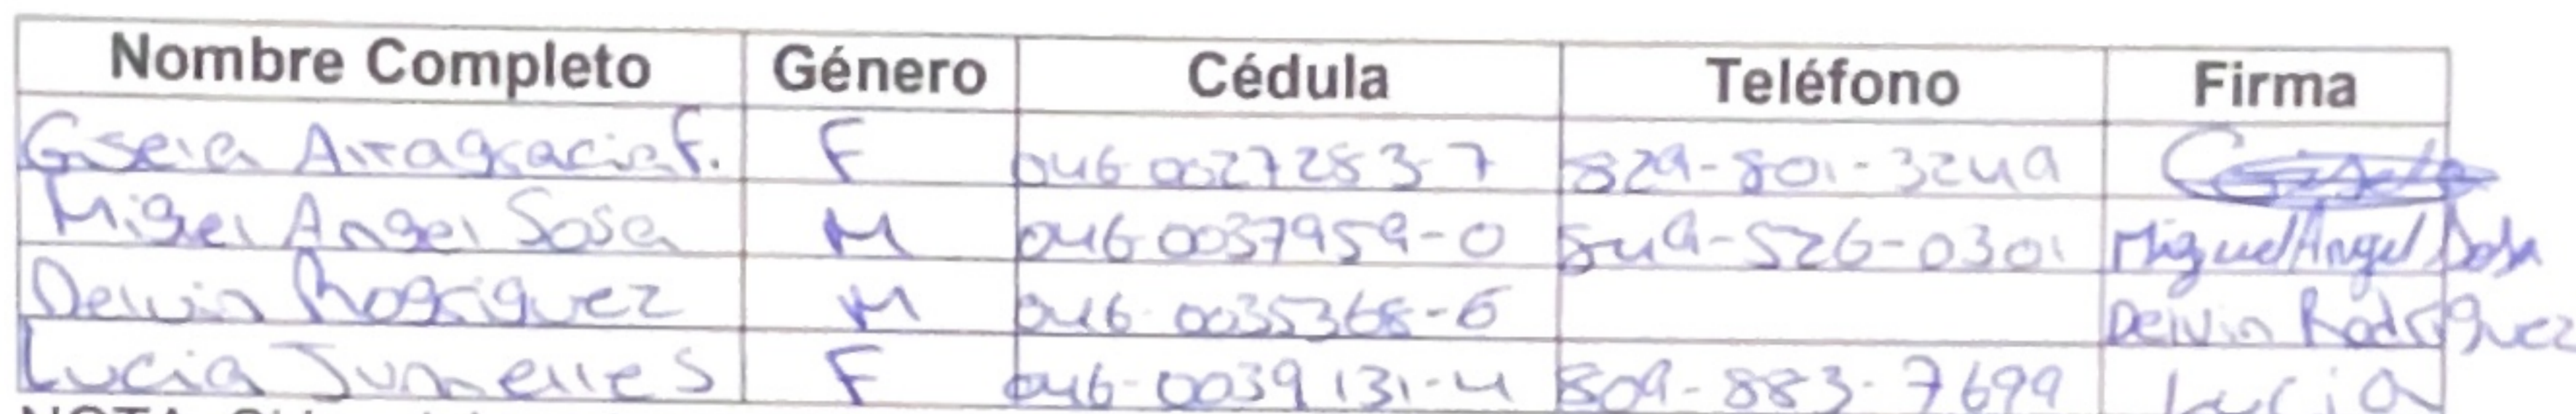 Nombre Completo Género Cédula Teléfono Firma
Giseia Altagracia F. F 046-0027283-7 829-801-3249 Gisela
Migel Angel Sosa M 046-0037959-0 849-526-0301 Miguel Angel Sosa
Delvin Rogriguez M 046-0035368-6 Delvin Rodriguez
Lucia Jumelles F 046-0039131-4 809-883-7699 Lucia
NOTA